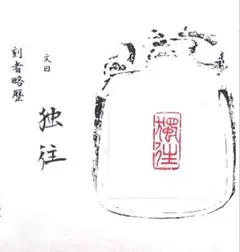 文曰
独往
刻者略歴
獨往